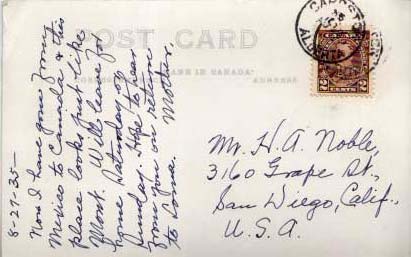 POST CARD
MADE IN CANADA
ADDRESS
CARDSTON
ALBERTA
2
8-27-35-
Now I have gone from
Mexico to Canada & this
place looks just like
Mont. Will leave for
home Saturday or
Sunday. Hope to hear
from you on return
to Loma. Mother.
Mr. H. A. Noble,
3160 Grape St.,
San Diego, Calif.,
U.S.A.